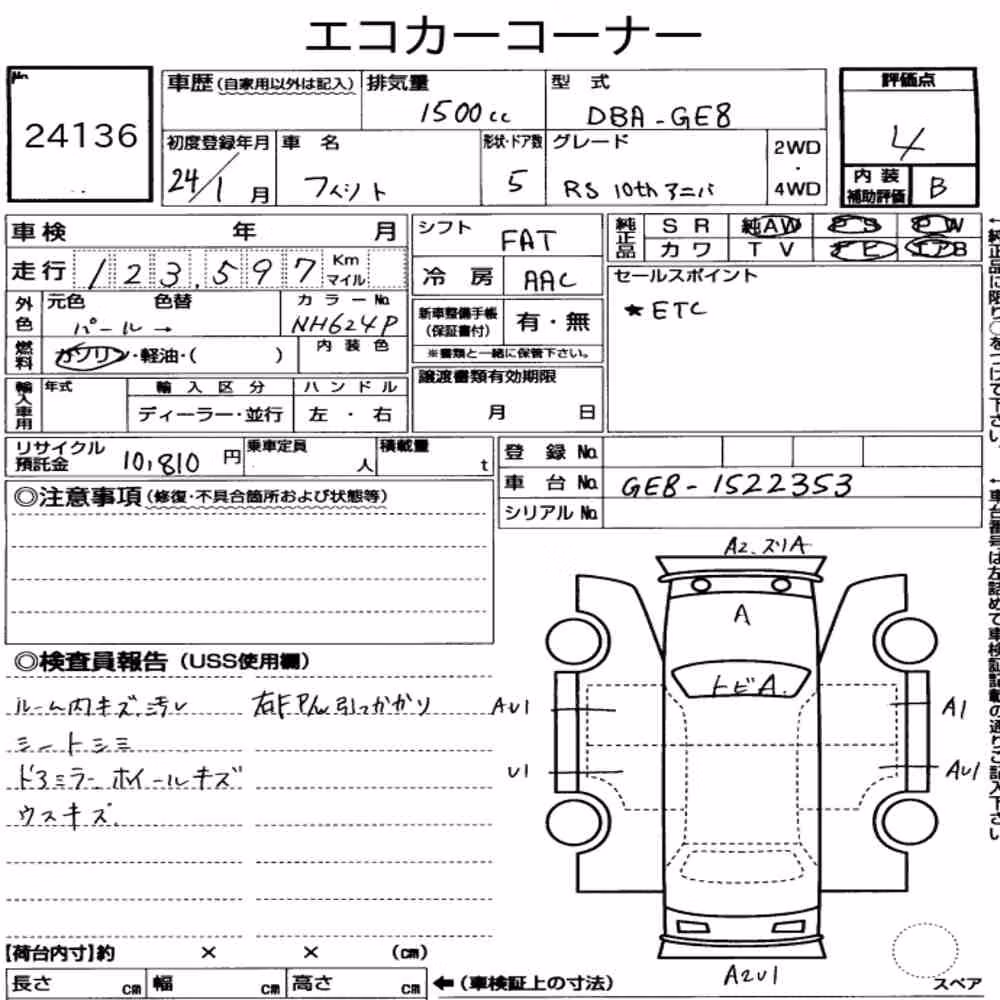 エコカーコーナー
No.
24136
車歴 (自家用以外は記入)
排気量
1500cc
型 式
DBA-GE8
評価点
4
初度登録年月
24/1 月
車 名
フィット
形状・ドア数
5
グレード
RS 10th アニバ
2WD
・
4WD
内装補助評価
B
車検 年 月
シフト
FAT
純正品
S R 純AW P S P W
カワ T V ナビ エアB
走行 123,597 Km マイル
冷 房
AAC
セールスポイント
★ETC
外色
元色 色替
パール→
カラーNo.
NH624P
新車整備手帳
(保証書付)
有・無
※書類と一緒に保管下さい。
燃料
ガソリン・軽油・( )
内 装 色
譲渡書類有効期限
月 日
輸入車用
年式
輸 入 区 分
ディーラー・並行
ハ ン ド ル
左 ・ 右
リサイクル
預託金
10,810 円
乗車定員
人
積載量
t
登 録 No.
車 台 No.
GE8-1522353
シリアル No.
◎注意事項 (修復・不具合箇所および状態等)
←純正品に限り○をつけて下さい。
←車台番号は左詰めで車検証記載の通りご記入下さい
◎検査員報告 (USS使用欄)
ルーム内キズ、汚レ
右Fドア引っかかり
シートシミ
ドアミラー、ホイールキズ
ウスキズ
A2.スリA
A
トビA.
AU1
A1
U1
AU1
A2U1
スペア
【荷台内寸】約 × × (cm)
長さ cm 幅 cm 高さ cm
←(車検証上の寸法)